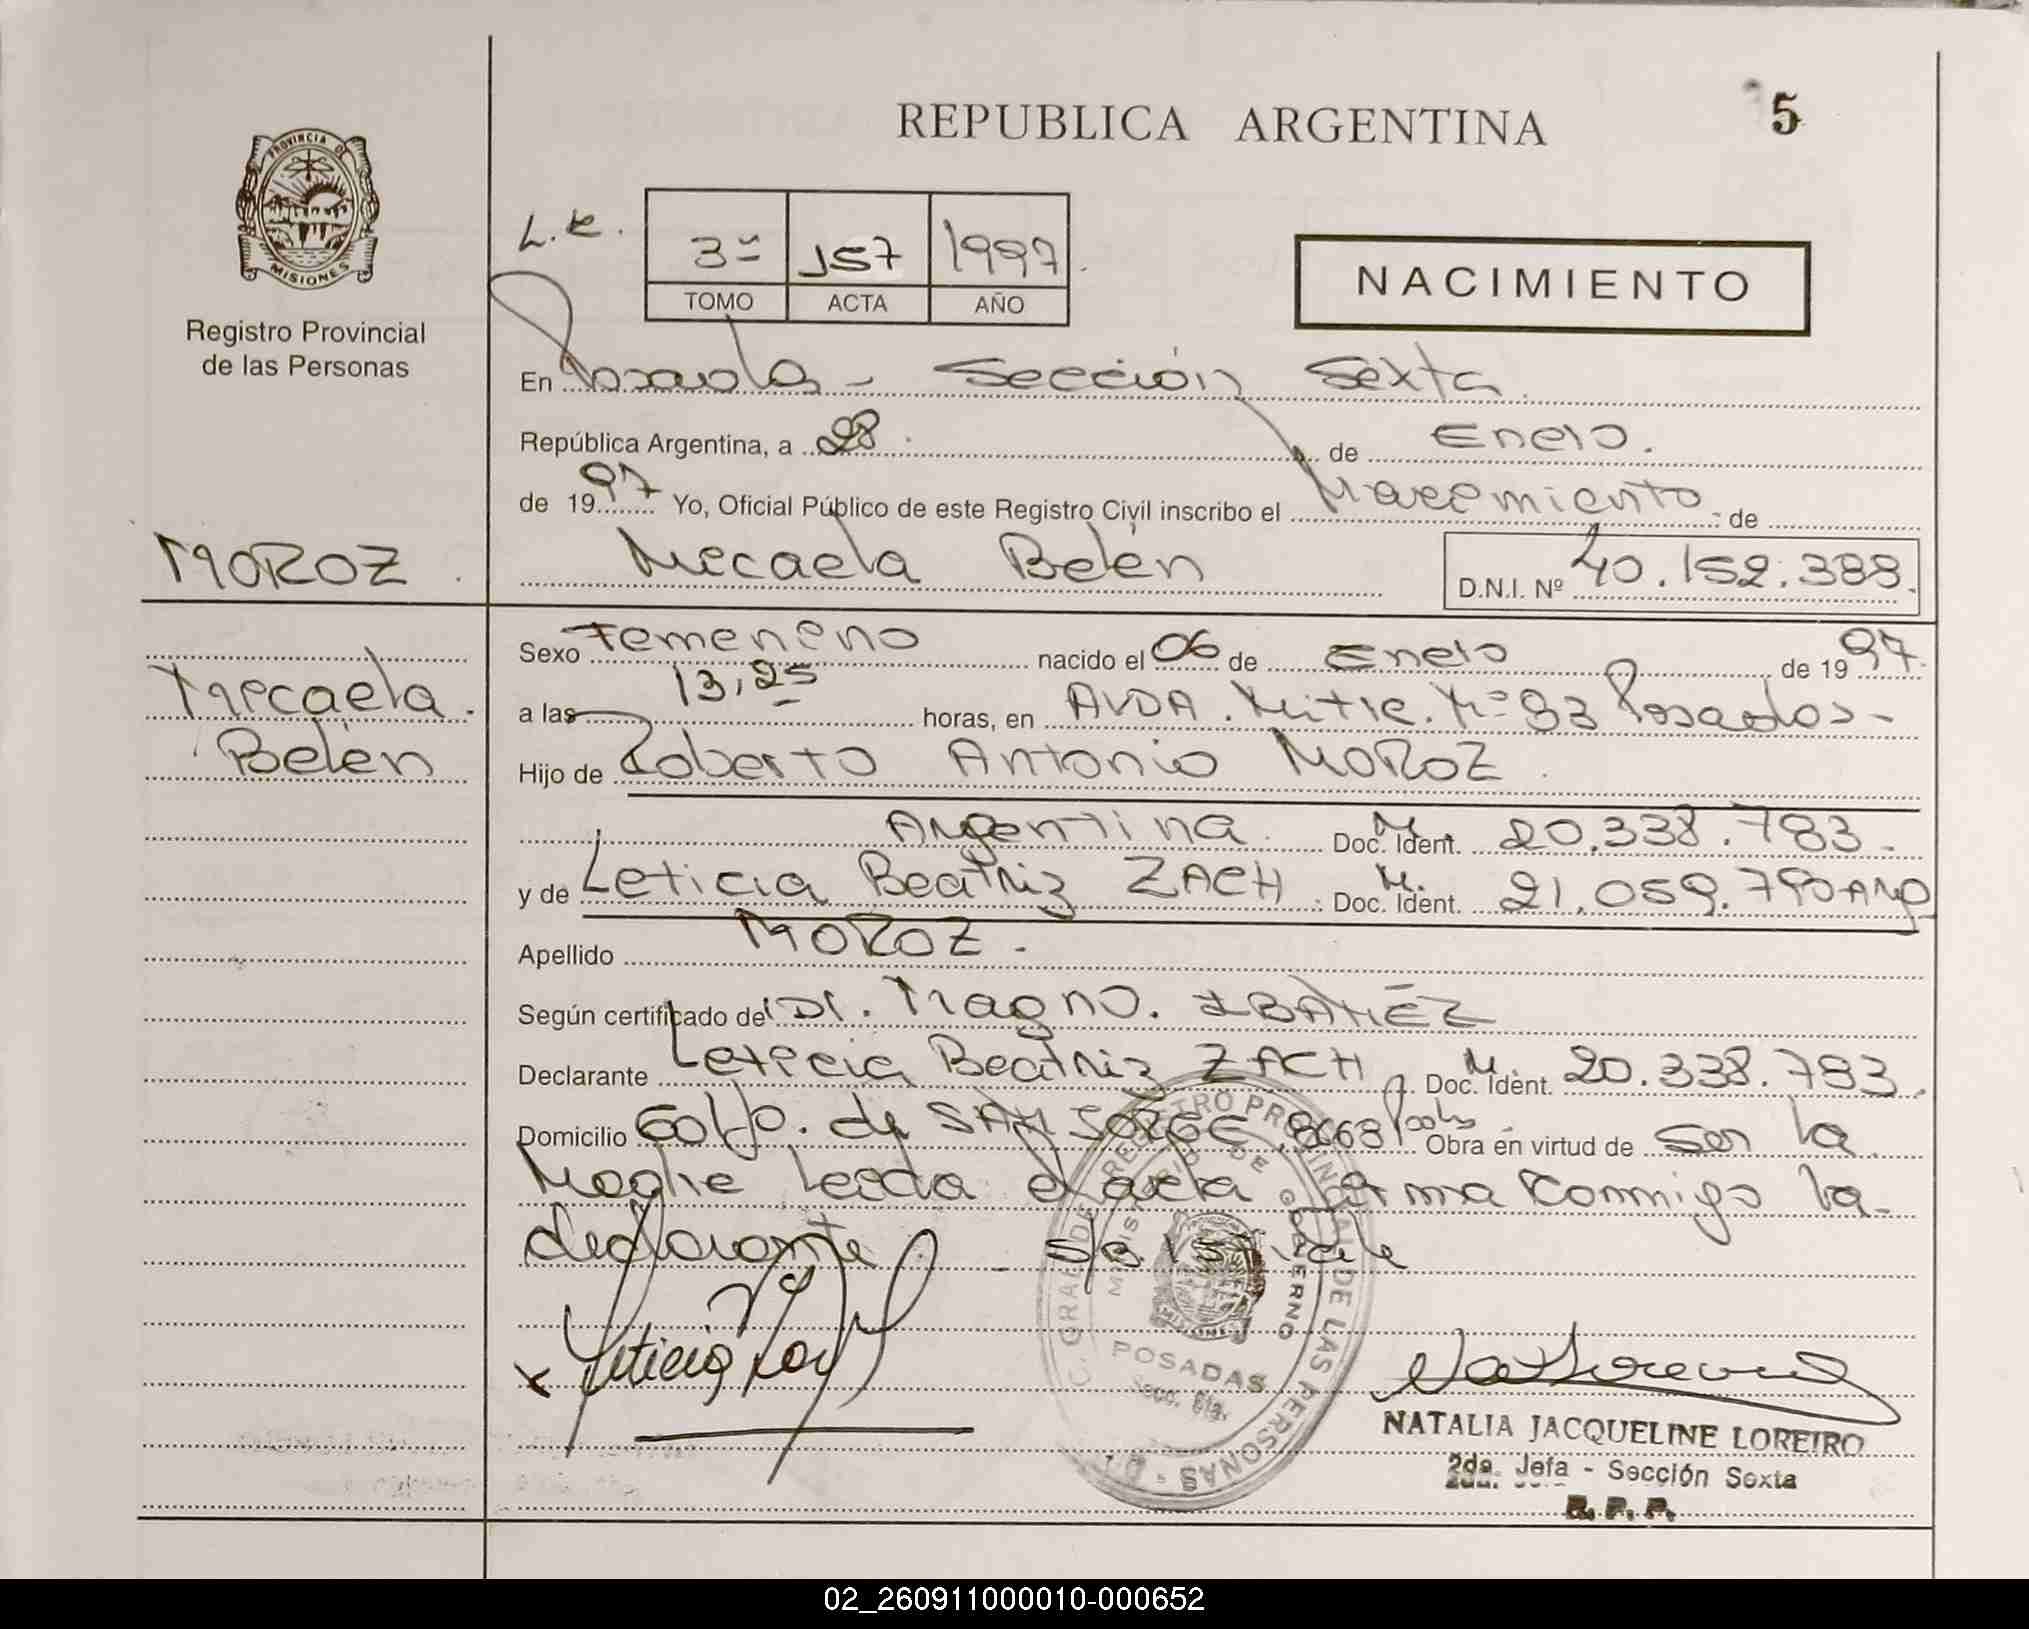 REPUBLICA ARGENTINA
5
PROVINCIA DE
MISIONES
Registro Provincial
de las Personas
L.E.
3º 157 1997
TOMO ACTA AÑO
NACIMIENTO
En Posadas - Sección Sexta
República Argentina, a 28 de Enero.
de 1997 Yo, Oficial Público de este Registro Civil inscribo el Nacimiento de
MOROZ
Micaela Belén
D.N.I. Nº 40.152.388.
Sexo Femenino nacido el 06 de Enero de 1997.
Micaela
Belén
a las 13,25 horas, en AVDA. Mitre. Nº 93 Posadas-
Hijo de Roberto Antonio MOROZ
Argentina. Doc. Ident. M. 20.338.783.
y de Leticia Beatriz ZACH Doc. Ident. M. 21.059.790 Arg
Apellido MOROZ.
Según certificado de Dr. Magno. IBAÑEZ
Declarante Leticia Beatriz ZACH Doc. Ident. M 20.338.783.
Domicilio Golfo. de SAN JORGE Obra en virtud de ser la
Madre Leida el acta firma conmigo la
declarante
REGISTRO PROVINCIAL DE LAS PERSONAS
MINISTERIO DE GOBIERNO
MISIONES
POSADAS
Secc. 6ta.
NATALIA JACQUELINE LOREIRO
2da. Jefa - Sección Sexta
R. P. P.
02_260911000010-000652